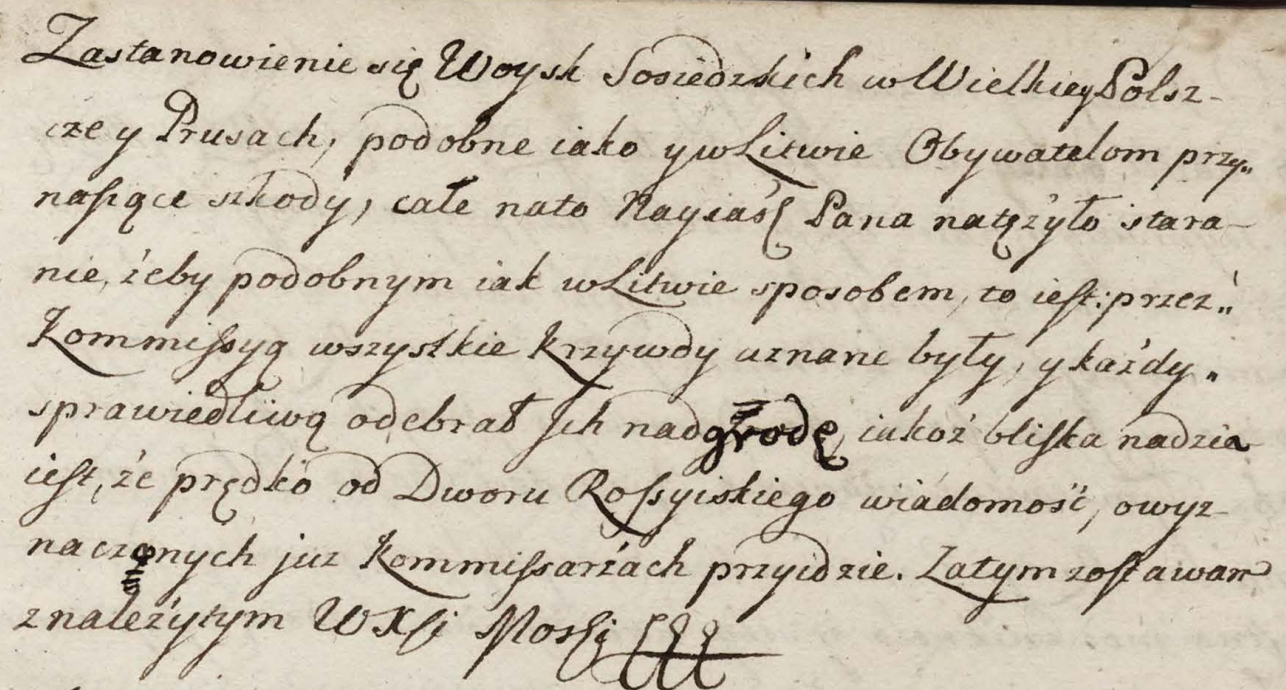 Zastanowienie się Woysk Sosiedzkich w Wielkiey Polsz-
cze y Prusach, podobne iako y w Litwie Obywatelom przy„
naszące szkody, całe na to Nayiaśſ Pana natężyło stara-
nie, żeby podobnym iak w Litwie sposobem, to ieſt: przez„
Kommiſsyą wszystkie Krzywdy uznane były, y każdy„
sprawiedliwą odebrał Ich nadgrodę, iakoż bliſka nadzia
ieſt, że prędko od Dworu Roſsyiskiego wiadomość, o wyz-
naczonych już Kommiſsarżach przyidzie. Zatym zoſtawam
z należytym WXſi Mosſi